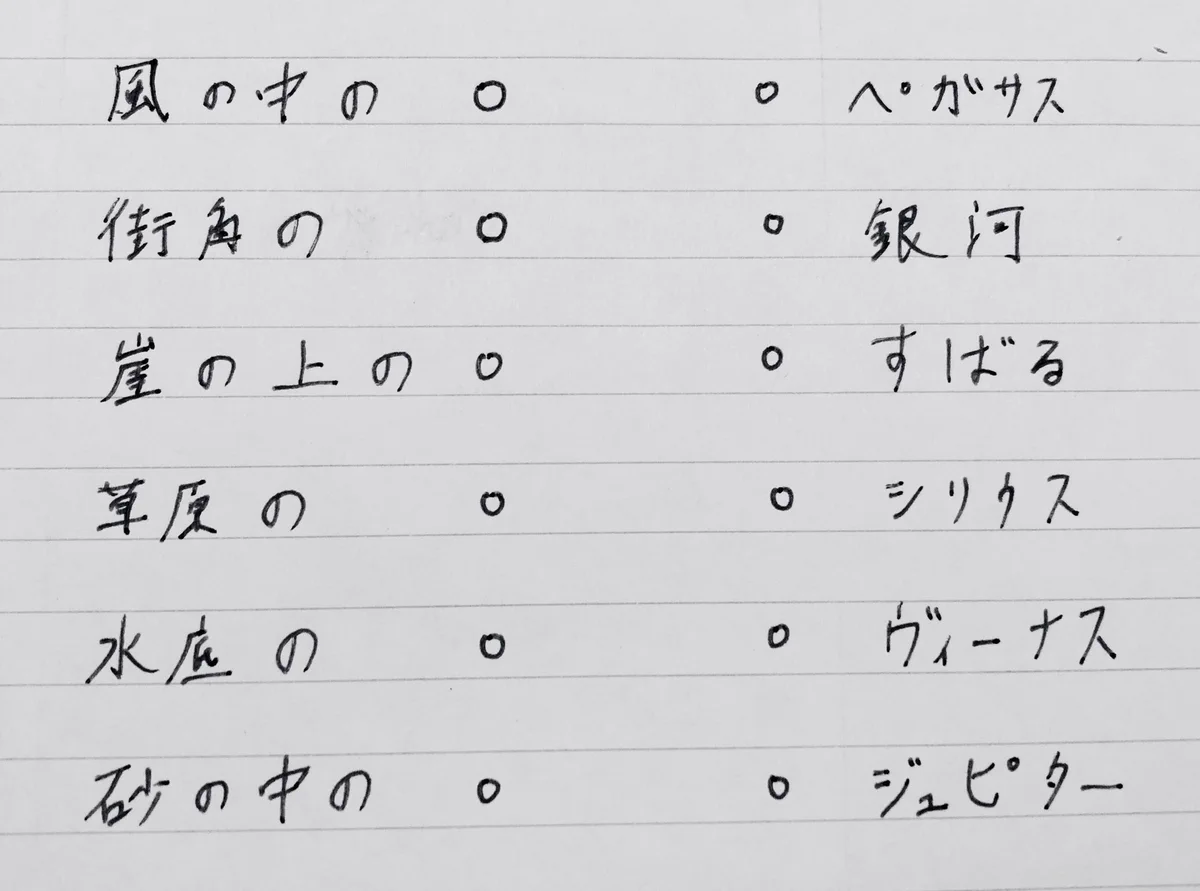 風の中の ○ ○ ペガサス
街角の ○ ○ 銀河
崖の上の ○ ○ すばる
草原の ○ ○ シリウス
水底の ○ ○ ヴィーナス
砂の中の ○ ○ ジュピター